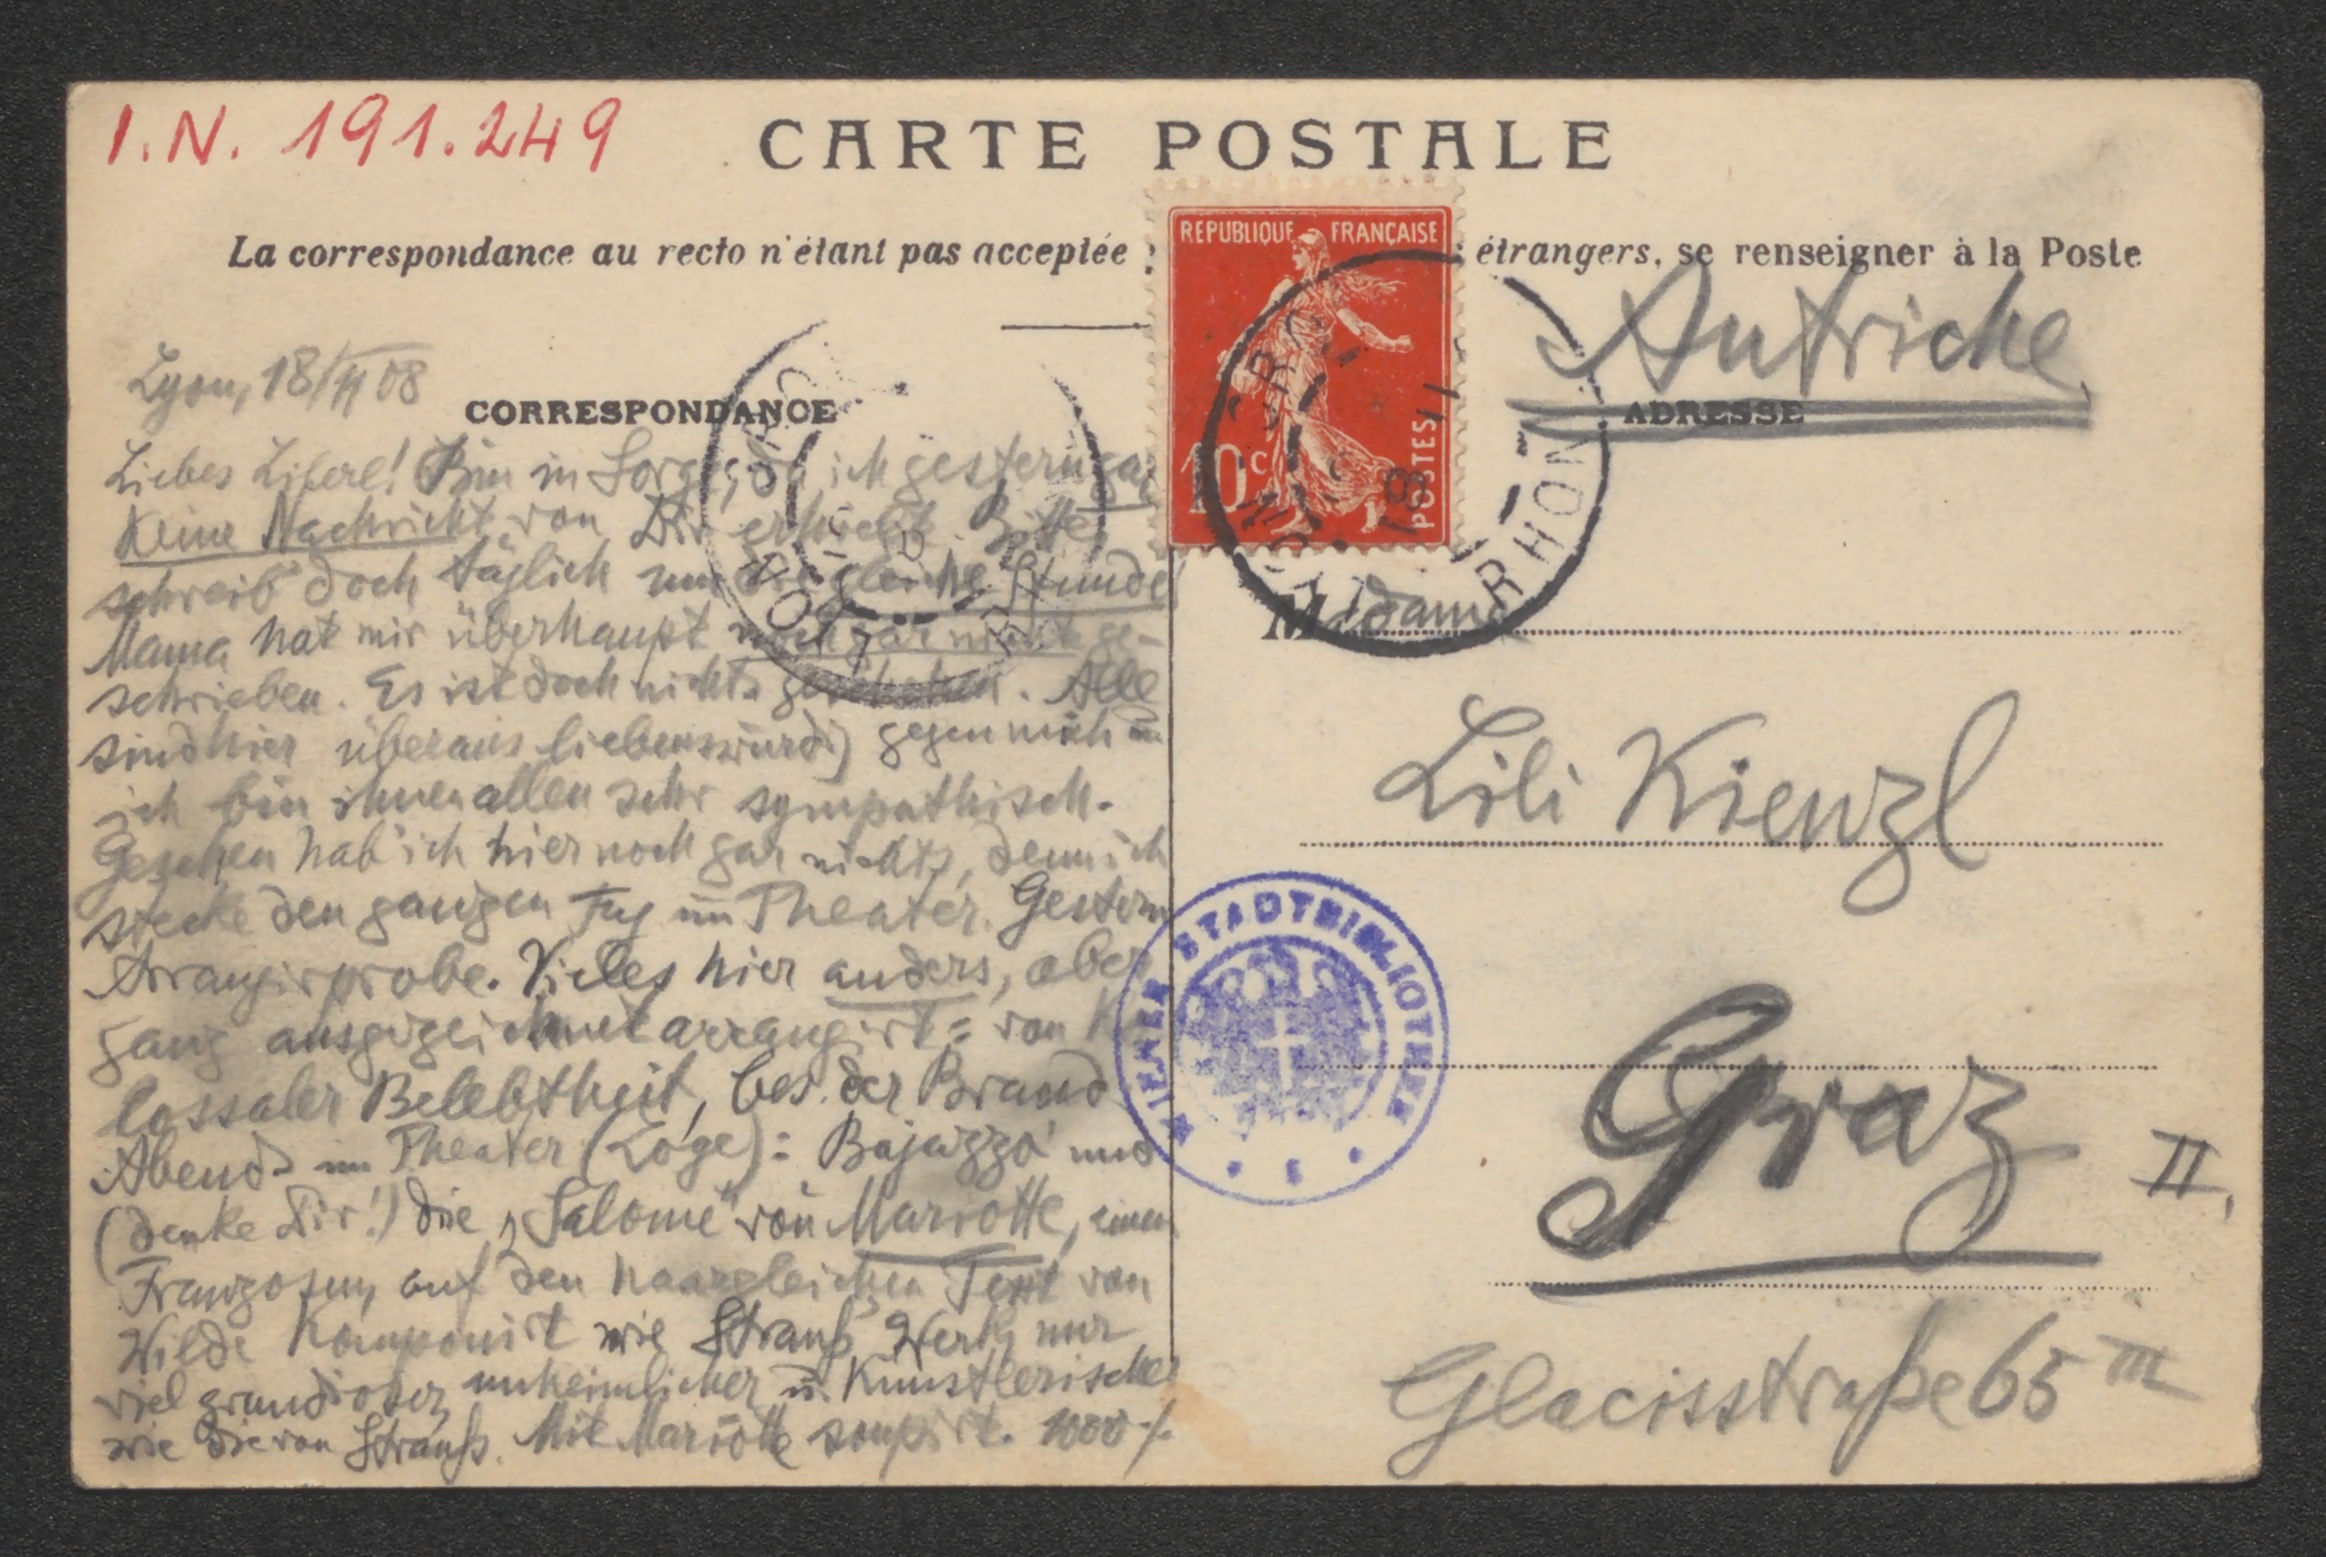 I.N. 191.249
CARTE POSTALE
La correspondance au recto n'étant pas acceptée étrangers, se renseigner à la Poste
REPUBLIQUE FRANÇAISE
10c
POSTES
RHONE
Autriche
Lyon, 18/XI 08
CORRESPONDANCE
ADRESSE
Liebes Lilerl! Bin in Sorge, da ich gestern gar
keine Nachricht von Dir erhielt. Bitte,
schreib doch täglich um die gleiche Stunde!
Mama hat mir überhaupt noch gar nicht ge-
schrieben. Es ist doch nichts geschehen. Alle
sind hier überaus liebenswürdig gegen mich u.
ich bin ihnen allen sehr sympathisch.
Gesehen hab' ich hier noch gar nichts, denn ich
stecke den ganzen Tag im Theater. Gestern
Arrangirprobe. Vieles hier anders, aber
ganz ausgezeichnet arrangirt = von Ko
lossaler Belebtheit, bes. der Brand
Abends im Theater (Loge): Bajazzo und
(denke Dir!) die „Salome" von Mariotte, einem
Franzosen, auf den haargleichen Text von
Wilde komponirt wie Strauß' Werk, nur
viel grandioser, unheimlicher u. künstlerischer
wie die von Strauß. Mit Mariotte soupirt. 1000
Madame
Lili Kienzl
Graz
II,
Glacisstraße 65 III
WIENER STADTBIBLIOTHEK